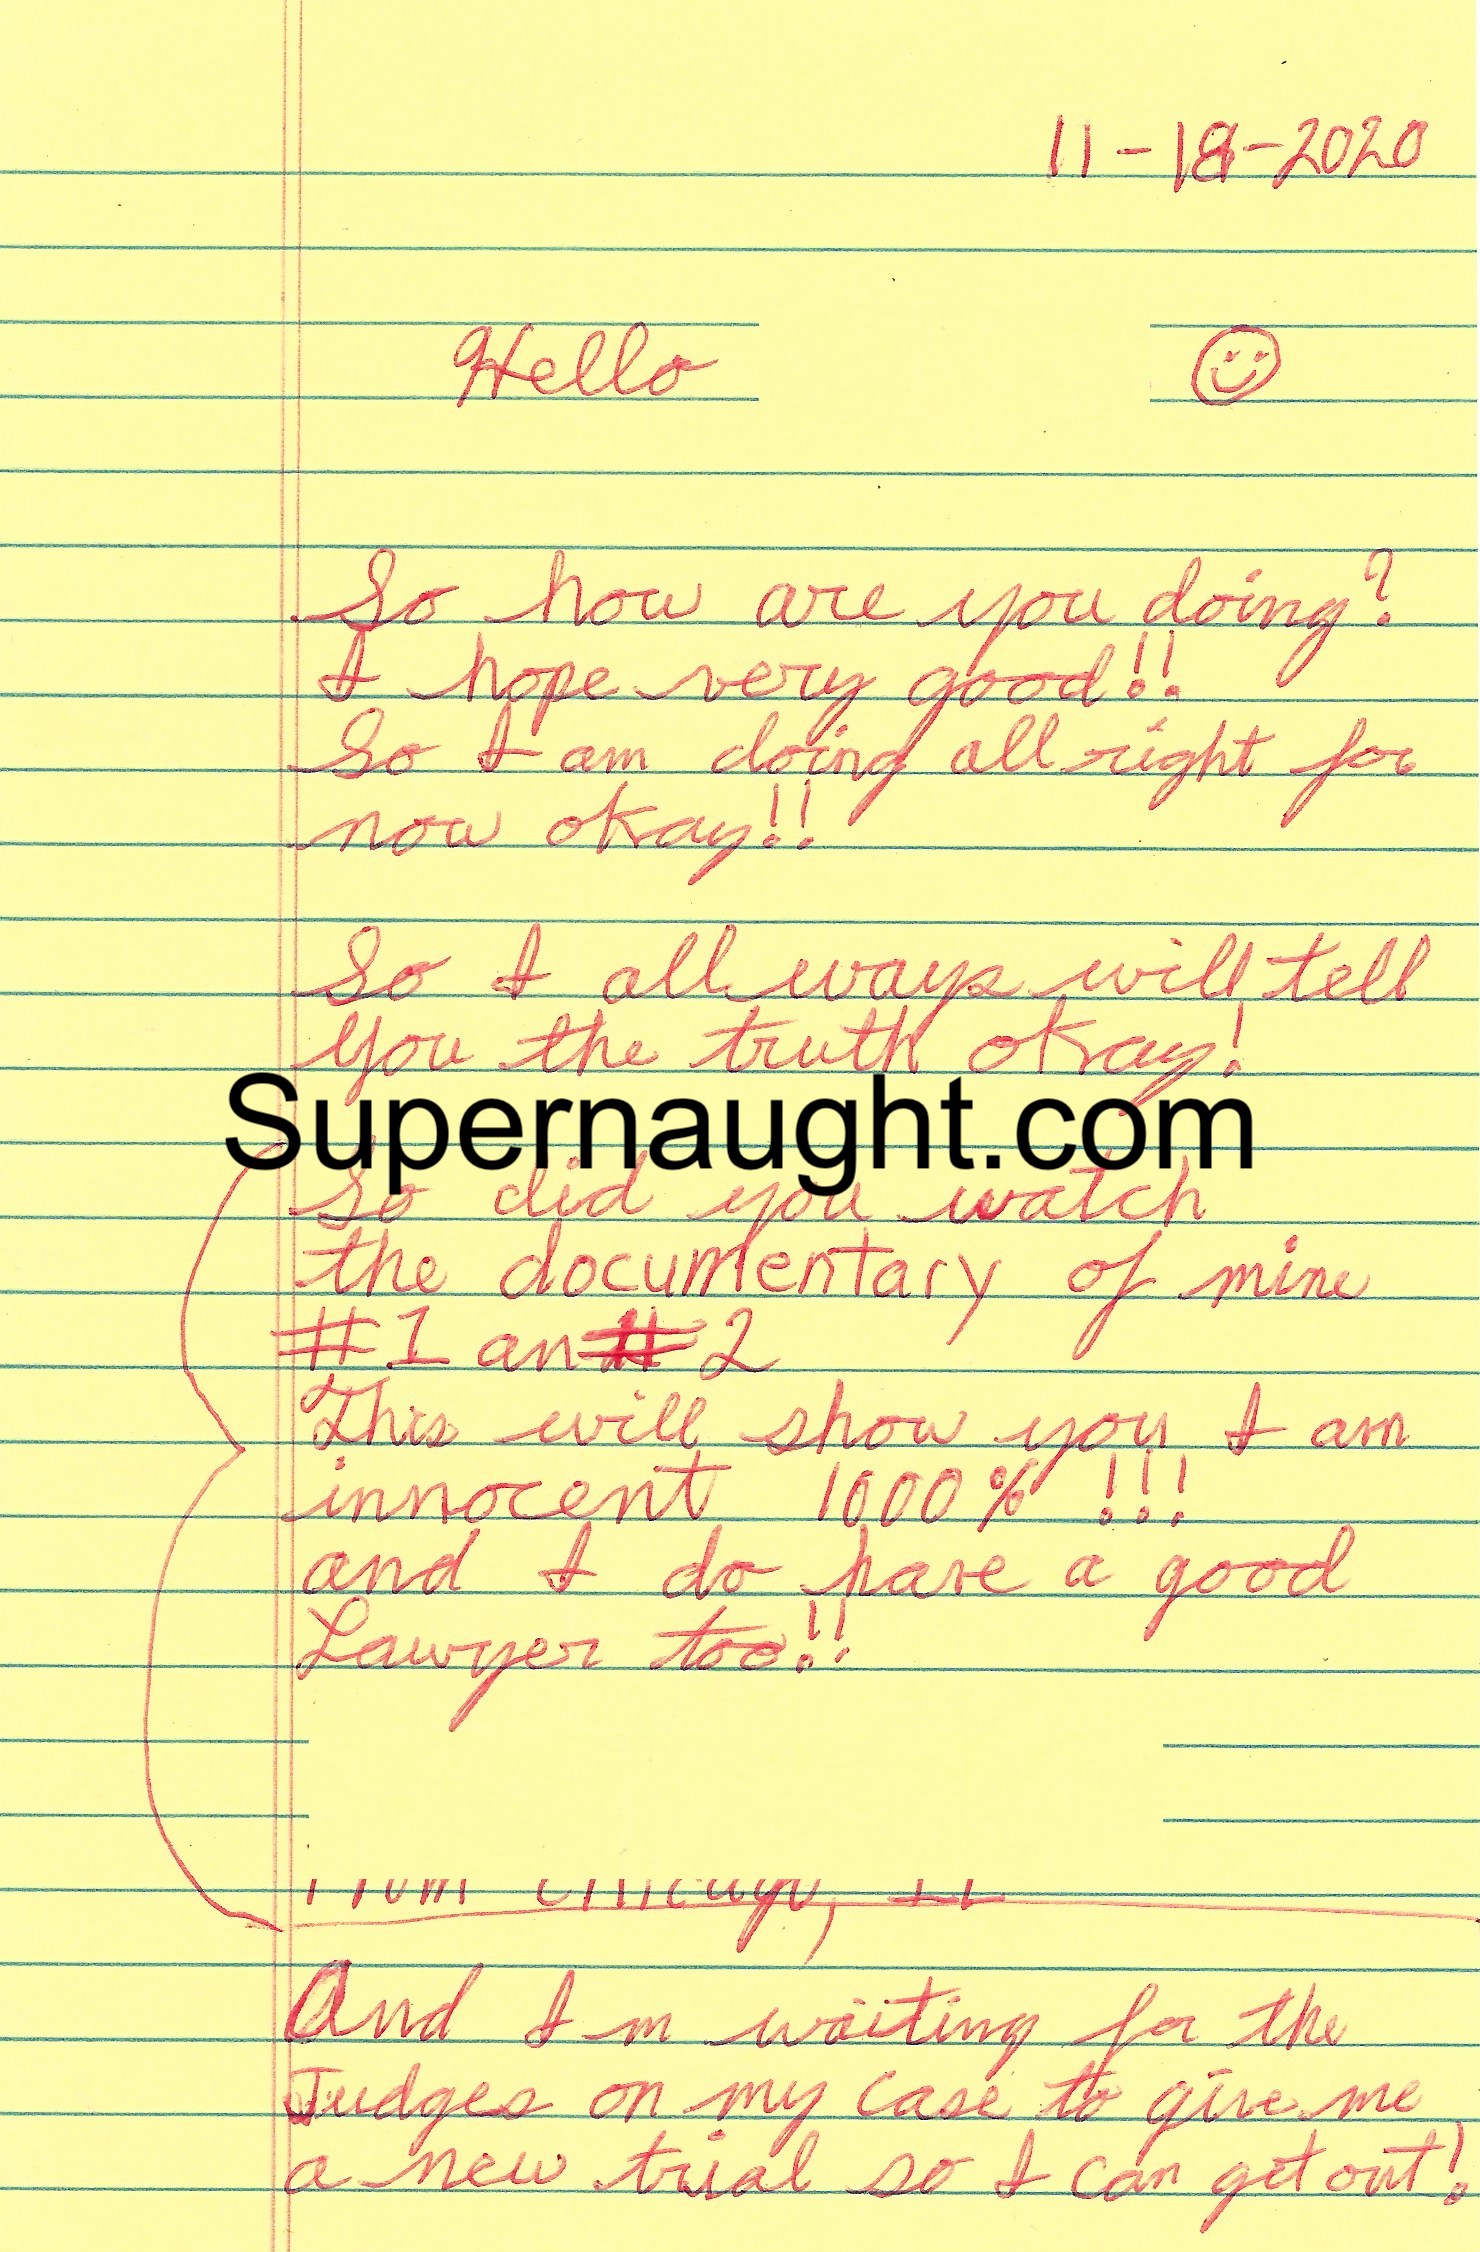 11-18-2020
Hello
So how are you doing?
I hope very good!!
So I am doing all right for
now okay!!
So I all ways will tell
you the truth okay!
Supernaught.com
So did you watch
the documentary of mine
#1 an# 2
This will show you I am
innocent 1000% !!!
and I do have a good
Lawyer too!!
From Chicago, IL
And I m waiting for the
Judges on my case to give me
a new trial so I can get out!